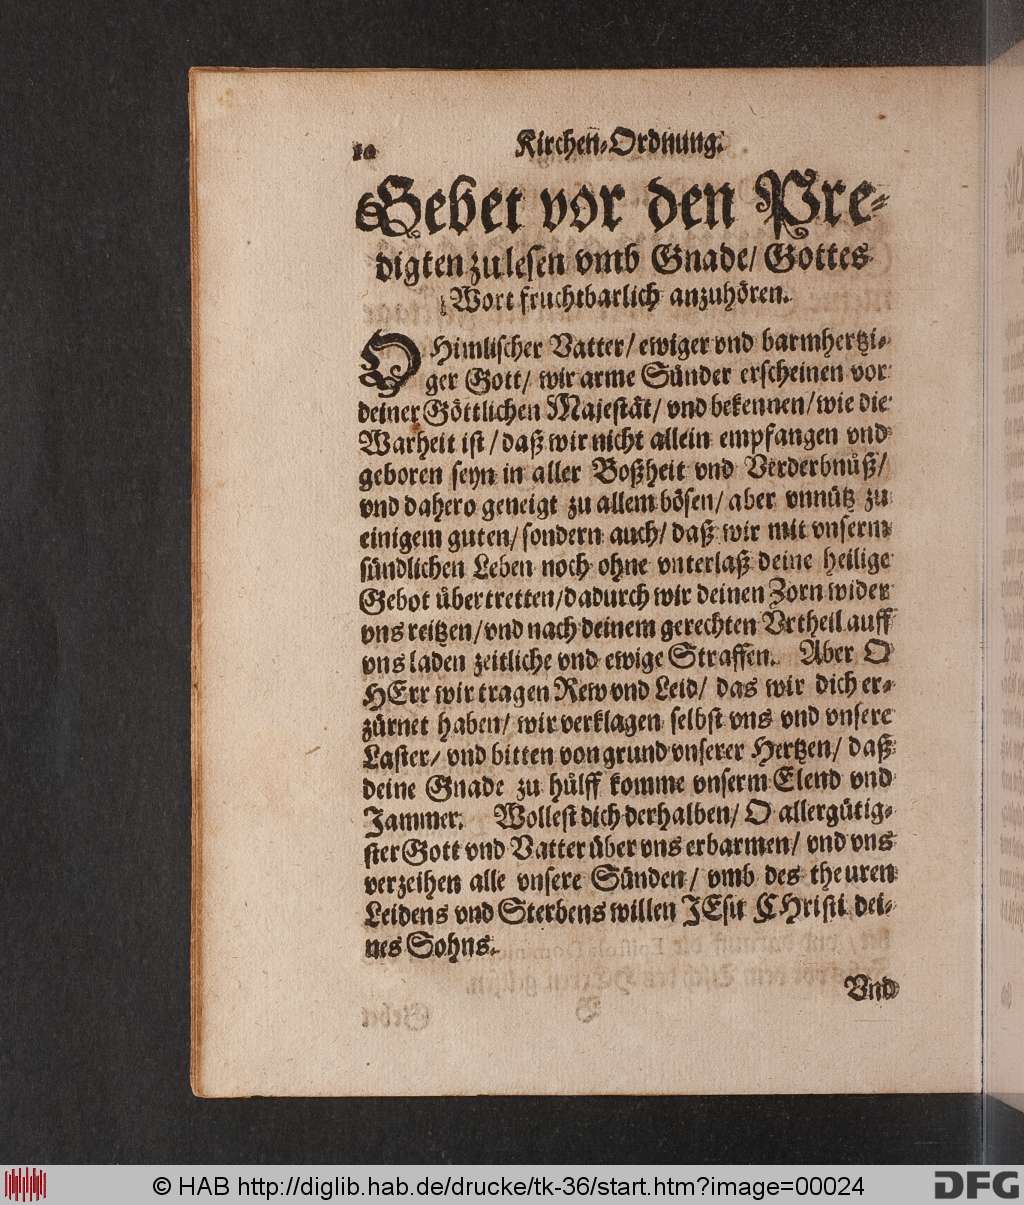 10 Kirchen-Ordnung.
Gebet vor den Pre-
digten zu lesen vmb Gnade/ Gottes
Wort fruchtbarlich anzuhören.
O Himlischer Vatter/ ewiger vnd barmhertzi-
ger Gott/ wir arme Sünder erscheinen vor
deiner Göttlichen Majestät/ vnd bekennen/ wie die
Warheit ist/ daß wir nicht allein empfangen vnd
geboren seyn in aller Boßheit vnd Verderbnüß/
vnd dahero geneigt zu allem bösen/ aber vnnütz zu
einigem guten/ sondern auch/ daß wir mit vnserm
sündlichen Leben noch ohne vnterlaß deine heilige
Gebot übertretten/ dadurch wir deinen Zorn wider
vns reitzen/ vnd nach deinem gerechten Vrtheil auff
vns laden zeitliche vnd ewige Straffen. Aber O
HErr wir tragen Rew vnd Leid/ das wir dich er-
zürnet haben/ wir verklagen selbst vns vnd vnsere
Laster/ vnd bitten von grund vnserer Hertzen/ daß
deine Gnade zu hülff komme vnserm Elend vnd
Jammer. Wollest dich derhalben/ O allergütig-
ster Gott vnd Vatter über vns erbarmen/ vnd vns
verzeihen alle vnsere Sünden/ vmb des theuren
Leidens vnd Sterbens willen JEsu CHristi dei-
nes Sohns.
Vnd
© HAB http://diglib.hab.de/drucke/tk-36/start.htm?image=00024
DFG